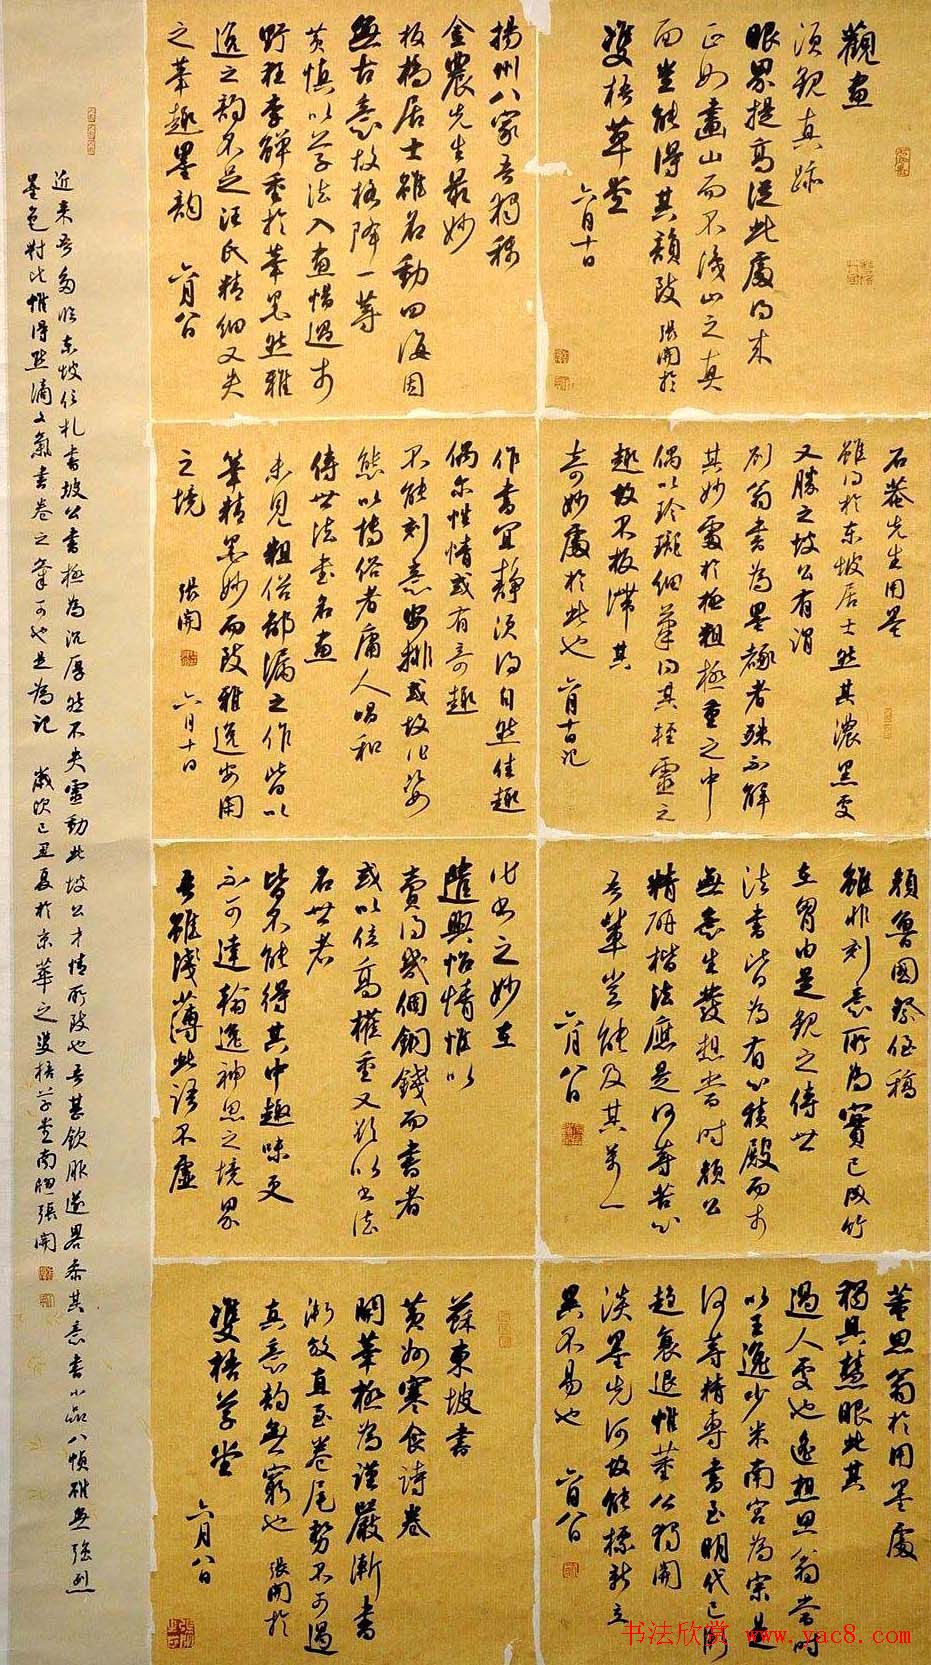 觀畫
須觀真跡
眼界提高從此處得来
正如畫山而不淺山之真
而豈能得其韻致 張開於
雙梧草堂
六月十日
揚州八家吾獨稱
金農先生最妙
板橋居士雖名動四海因
無古意故格降一等
黄慎以草法入畫惜過於
野狂李鱓重於筆墨然雅
逸之韵不足汪氏精細又失
之筆趣墨韵 六月八日
石菴先生用墨
雖得於東坡居士然其濃黑更
又勝之坡公有謂
劉翁書為墨豬者殊不解
其妙處於極粗極重之中
偶以玲瓏細筆得其輕靈之
趣故不板滯其
奇妙處於此也 六月十日记
作書宜靜須得自然佳趣
偶尔性情或有奇趣
不能刻意安排或故作姿
態以博俗者庸人唱和
傳世法書名畫
未見粗俗鄙漏之作皆以
筆精墨妙而致雅逸安閑
之境 張開 六月十日
顏魯國祭侄稿
雖非刻意所為實已成竹
在胃由是觀之傳世
法書皆為有心積殿而於
無意生發想當时顏公
精研楷法應是何等苦心
吾輩豈能及其萬一
六月八日
作書之妙在
遣興怡情惟以
賣得幾個銅錢而書者
或以位高權重又欲以書法
名世者
皆不能得其中趣味更
不可達翰逸神思之境界
吾雖淺薄此語不虛
董思翁於用墨處
獨具慧眼此其
過人更也遙想思翁當时
以王逸少米南宫為宗是
何等精專書至明代已漸
趋衰退惟董公獨開
淡墨先河故能標新立
異不易也 六月八日
蘇東坡書
黄州寒食詩卷
開筆極為谨嚴漸書
漸放直至卷尾勢不可遏
真意韵無窮也 張開於
雙梧草堂
六月八日
近来吾多临东坡信札書坡公書極為沉厚然不失靈動此坡公才情所致也吾甚欽服遂畧參其意書小品八幀雖無强烈
墨色对比惟得點滴文氣書卷之氣可也是為記 歲次己丑夏於京華之雙梧草堂南牕張開
书法欣赏 www.yac8.com